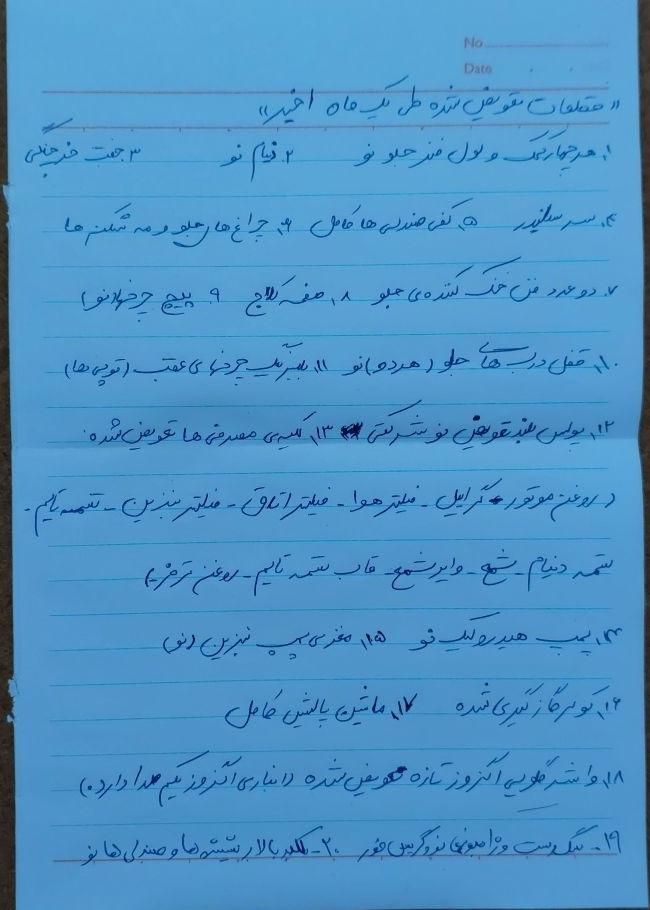 No
Date
«متعلقات تعویض شده طی یک ماه اخیر»
۱. هر چهار کمک و لول فنر جلو نو ۲. دینام نو ۳. جفت خرچنگی
۴. سر سیلندر ۵. کفی صندلی ها کامل ۶. چراغ های جلو و مه شکن ها
۷. دو عدد فن خنک کننده ی جلو ۸. صفحه کلاج ۹. پیچ چرخها (نو)
۱۰. قفل درب های جلو (هر دو) نو ۱۱. بلبرینگ چرخهای عقب (توپی ها)
۱۲. پولوس تعویض نو شرکتی ۱۳. کلیه ی مصرفی ها تعویض شده
(روغن موتور - گریل - فیلتر هوا - فیلتر اتاق - فیلتر بنزین - تسمه تایم -
تسمه دینام - شمع - وایر شمع - قاب تسمه تایم - روغن ترمز)
۱۴. پمپ هیدرولیک نو ۱۵. مغزی پمپ بنزین (نو)
۱۶. کولر گازگیری شده ۱۷. ماشین پالیش کامل
۱۸. واشر گلویی اگزوز تازه تعویض شده (انباری اگزوز یکم صدا دارد)
۱۹- سگ دست و ژامبونها نو و گریس خور ۲۰- کلید بالابر شیشه ها و صندلی ها نو